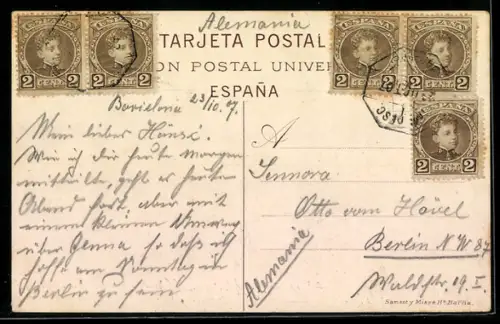 Alemania
TARJETA POSTAL
ON POSTAL UNIVER
ESPAÑA
ESPAÑA
2 CENTS 2
ESPAÑA
2 CENTS 2
ESPAÑA
2 CENTS 2
ESPAÑA
2 CENTS 2
ESPAÑA
2 CENTS 2
23/10. 07.
Mein lieber Hänsi.
Wie ich dir heute morgen
mitteilte, geht es heute
Abend fort aber mit
einem kleinen Umweg
über Genua so daß ich
hoffe am Sonntag in
Berlin zu sein.
A
Sennora
Otto vom Hövel
Berlin N.W 87
Waldstr. 19. I
Alemania
Samsot y Missé Hs. Barna.